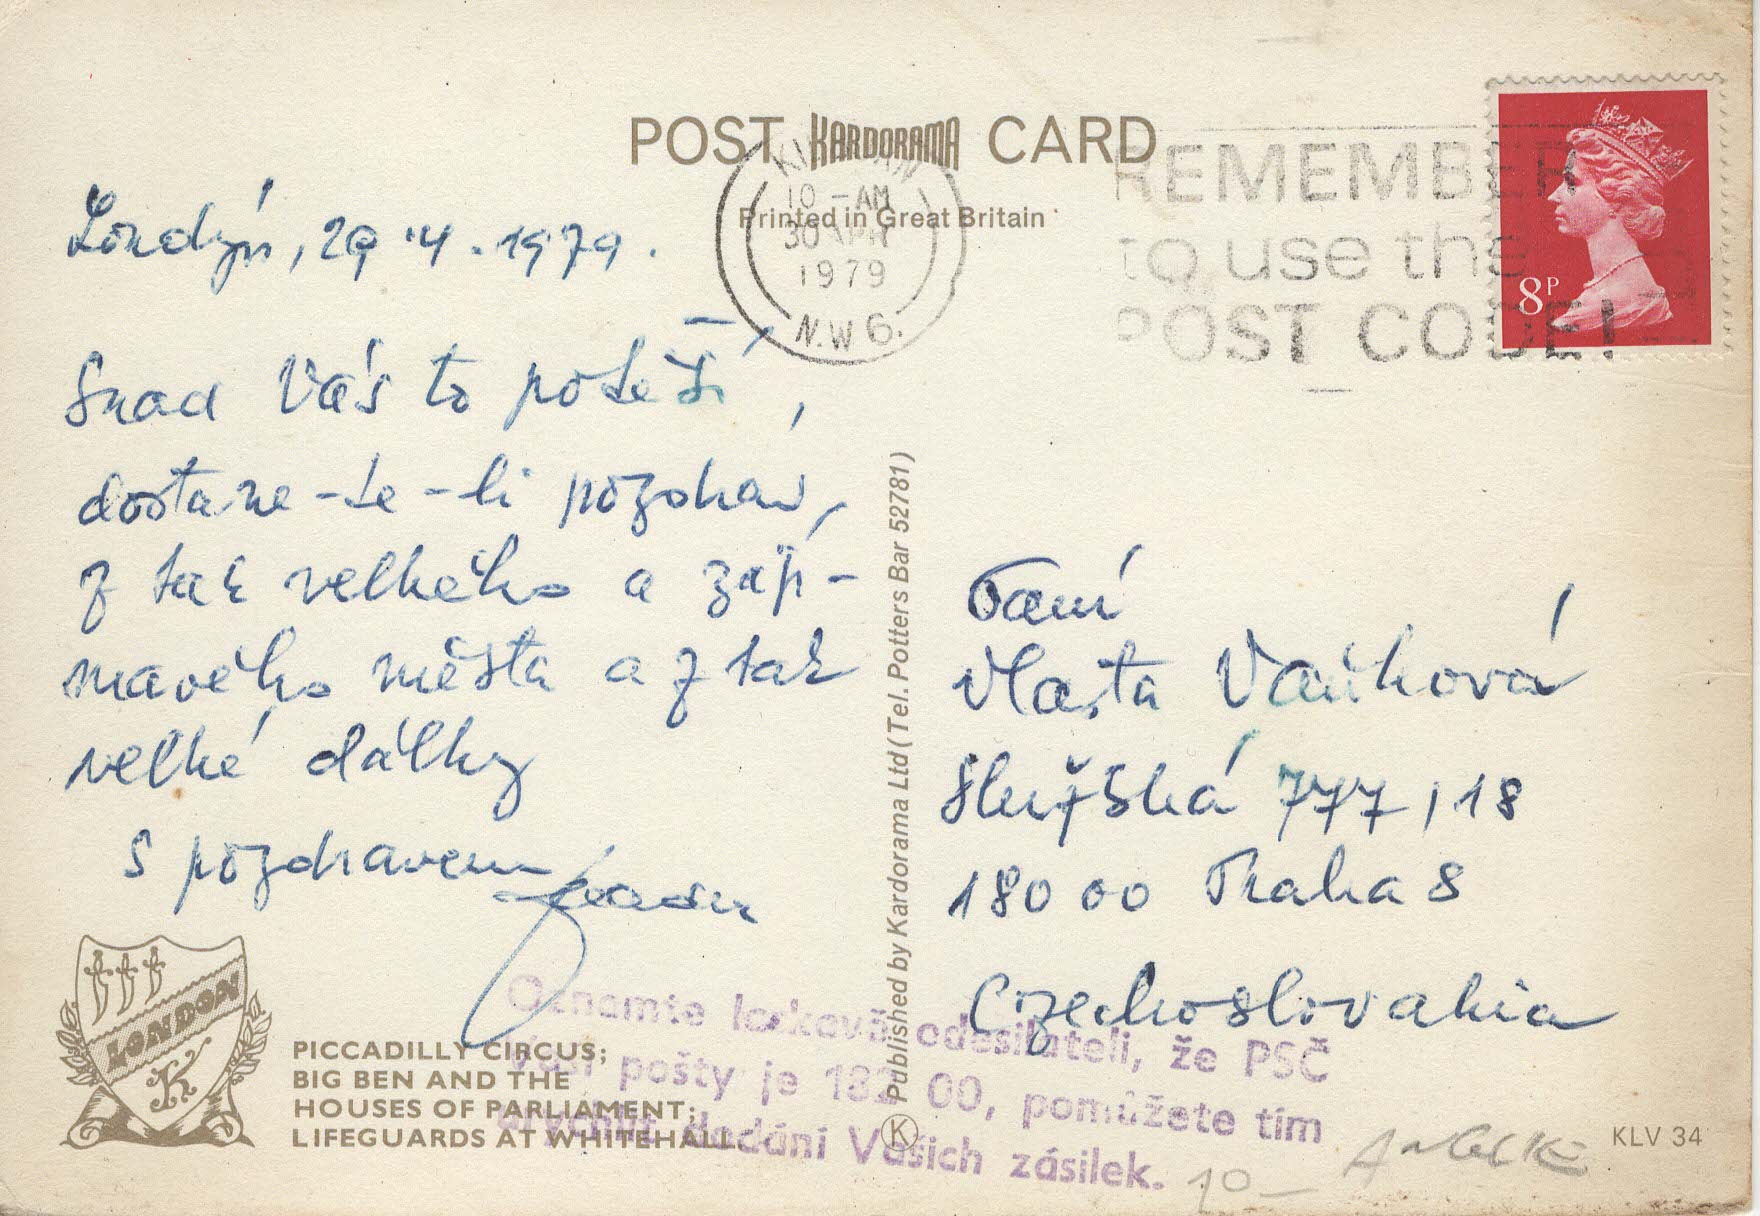 POST KARDORAMA CARD
Printed in Great Britain
10 - AM
30 APR
1979
N.W 6.
REMEMBER
to use the
POST CODE!
8P
Londýn, 29.4.1979.
Snad Vás to potěší,
dostane-te-li pozdrav,
z tak velkého a zají-
mavého města a z tak
velké dálky
S pozdravem
Paní
Vlasta Vaňková
777, 18
180 00 Praha 8
Czechoslovakia
Published by Kardorama Ltd (Tel. Potters Bar 52781)
LONDON
K
PICCADILLY CIRCUS;
BIG BEN AND THE
HOUSES OF PARLIAMENT;
LIFEGUARDS AT WHITEHALL.
K
KLV 34
Oznamte laskavě odesilateli, že PSČ
Vaší pošty je 182 00, pomůžete tím
urychlit dodání Vašich zásilek.
10-